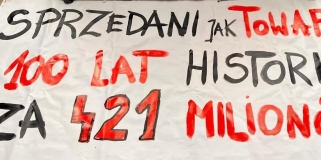 SPRZEDANI JAK TOWAR
100 LAT HISTORI
ZA 421 MILIONÓ